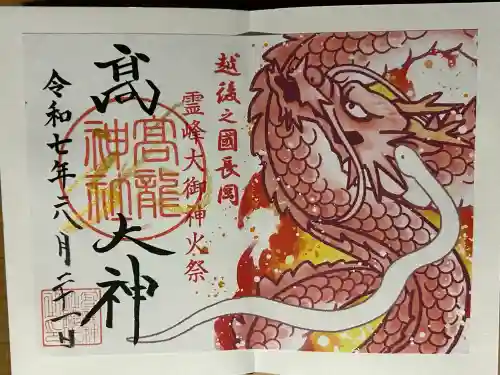 越後之國長岡
霊峰大御神火祭
髙大神
高龍
神社
令和七年八月二十一日